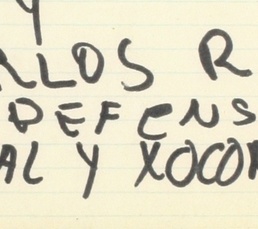 Y
RLOS R
DEFENS
AL Y XOCO